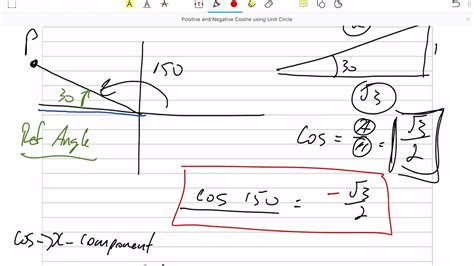 Positive and Negative Cosine using Unit Circle
P
150
30
Ref Angle
30
1
√3
Cos = A/H = √3/2
cos 150 = - √3/2
Cos → x - component